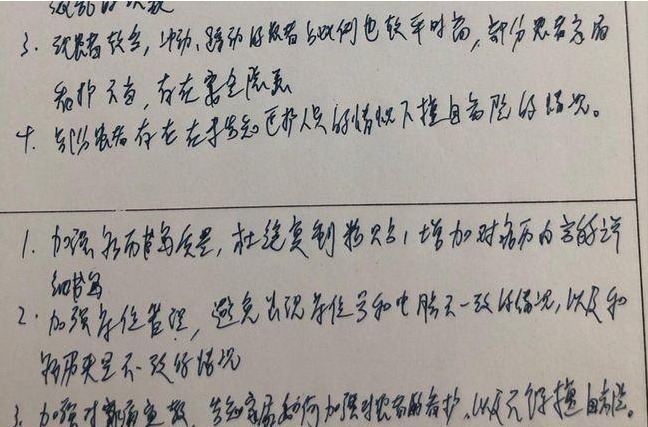 3. 现患者较多，冲动、躁动的患者占比例也较平时高，部分患者家属
看护不当，存在安全隐患
4. 部分患者存在在未告知医护人员的情况下擅自离院的情况。
1. 加强病历书写质量，杜绝复制粘贴，增加对病历内容的详
细书写
2. 加强床位管理，避免出现床位号和电脑不一致的情况，以及和
病历夹显示不一致的情况
3. 加强对 宣教，告知家属如何加强对患者的看护，以及不得擅自离院。